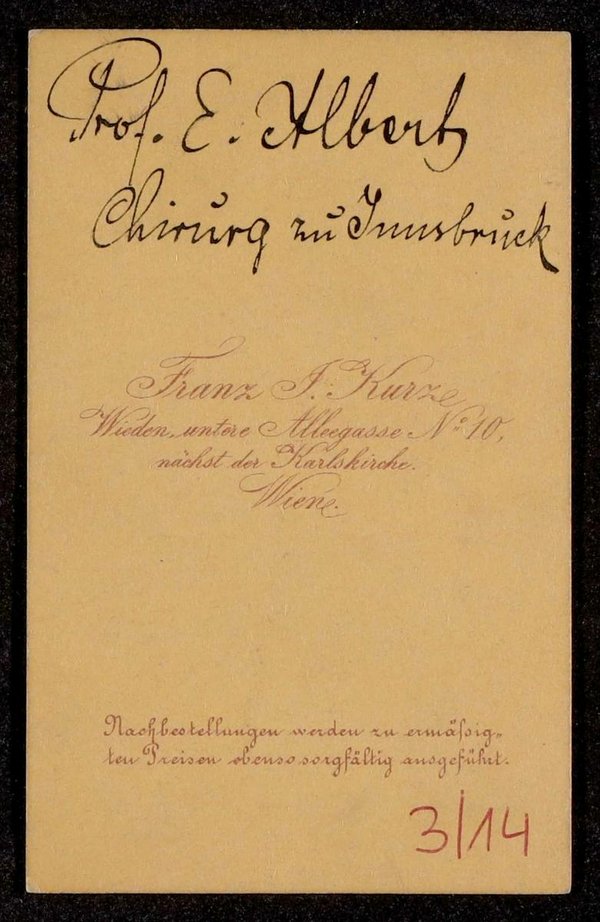 Prof. E. Albert
Chirurg zu Innsbruck
Franz J. Kurz
Wieden, untere Alleegasse No 10,
nächst der Karlskirche.
Wien.
Nachbestellungen werden zu ermäßig-
ten Preisen ebenso sorgfältig ausgeführt.
3/14